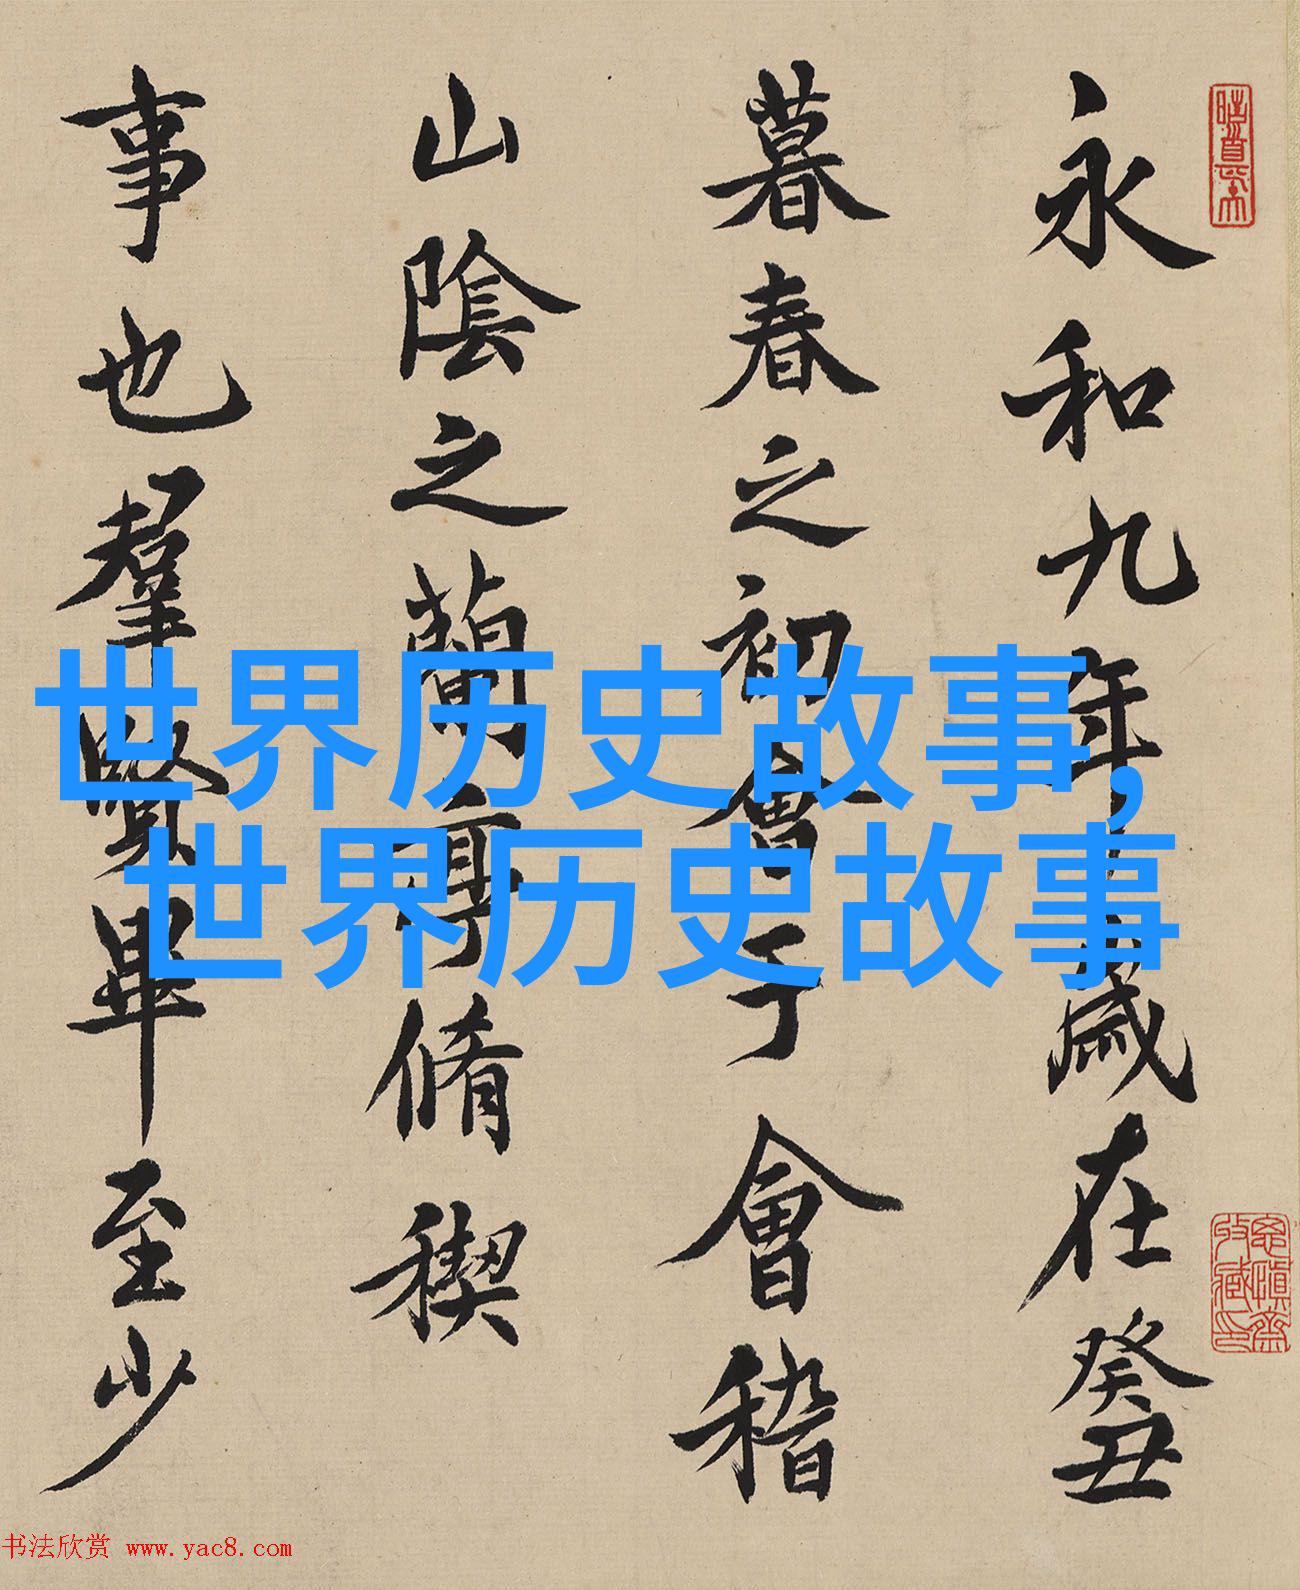 永和九年歲在癸丑
暮春之初會于會稽
山陰之蘭亭脩稧
事也羣賢畢至少
世界历史故事,
世界历史故事
书法欣赏 www.yac8.com